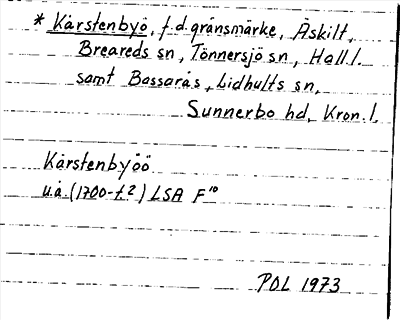 * Kärstenbyö, f.d. gränsmärke, Äskilt,
Breareds sn, Tönnersjö sn, Hall l.
samt Bassarås, Lidhults sn,
Sunnerbo hd, Kron. l.
Kärstenbyöö
u.å. (1700-t.²) LSA F¹⁰
POL 1973